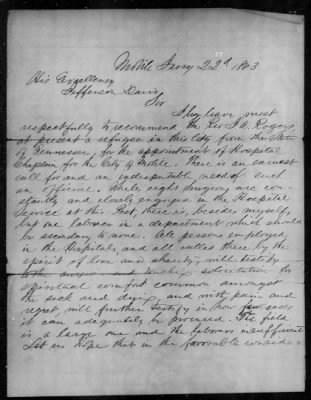 Mobile Jany 22d 1863
His Excellency
Jefferson Davis
Sir
I beg leave most
respectfully to recommend the Rev. J. A. Rogers
at present a refugee in this city from the State
of Tennessee, for the appointment of Hospital
Chaplain for the City of Mobile. There is an earnest
call for and an indisputable need of such
an officer. While eight surgeons are con-
stantly and closely engaged in the Hospital
service at this Post, there is, besides myself,
but one laborer in a department which should
be secondary to none. All persons employed
in the Hospitals, and all called there by the
spirit of love and charity, will testify
to the solicitation for
spiritual comfort common amongst
the sick and dying and with pain and
regret will further testify in how few cases
it can adequately be procured. The field
is a large one and the laborers insufficient.
Let us hope that in the favorable conside-